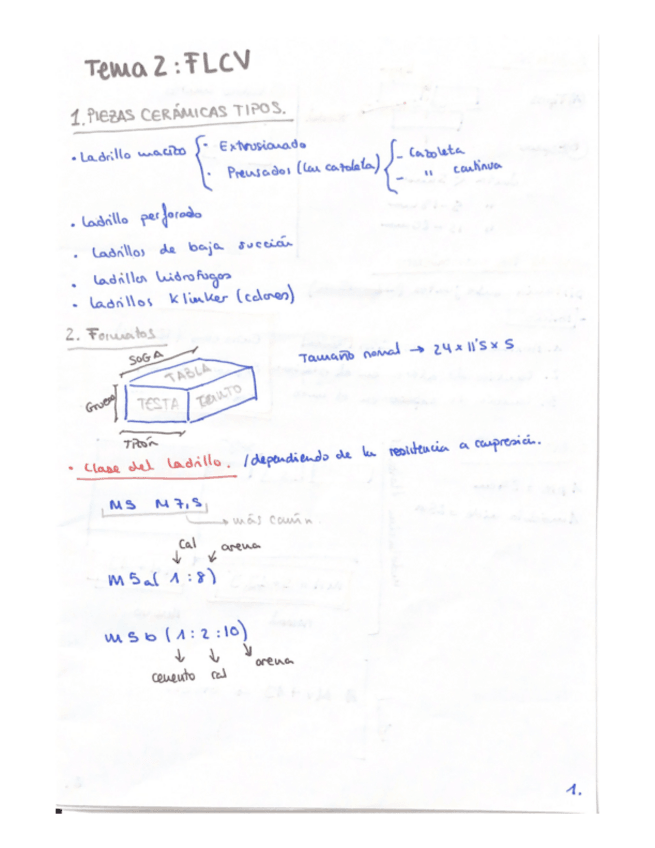 Tema 2: FLCV
1. PIEZAS CERÁMICAS TIPOS.
• Ladrillo macizo
· Extrusionado
· Prensados (con cazoleta)
- Cazoleta
- " continua
• Ladrillo perforado
• Ladrillos de baja succión
• Ladrillos hidrofugos
• Ladrillos Klinker (colores)
2. Formatos
Tamaño normal → 24 x 11'5 x 5
SOGA
TABLA
Grueso
TESTA
CANTO
TIZÓN
• Clase del ladrillo. / dependiendo de la resistencia a compresión.
M5 M7,5
→ más común.
Cal arena
M5a( 1:8)
M5b (1:2:10)
cemento cal arena
1.